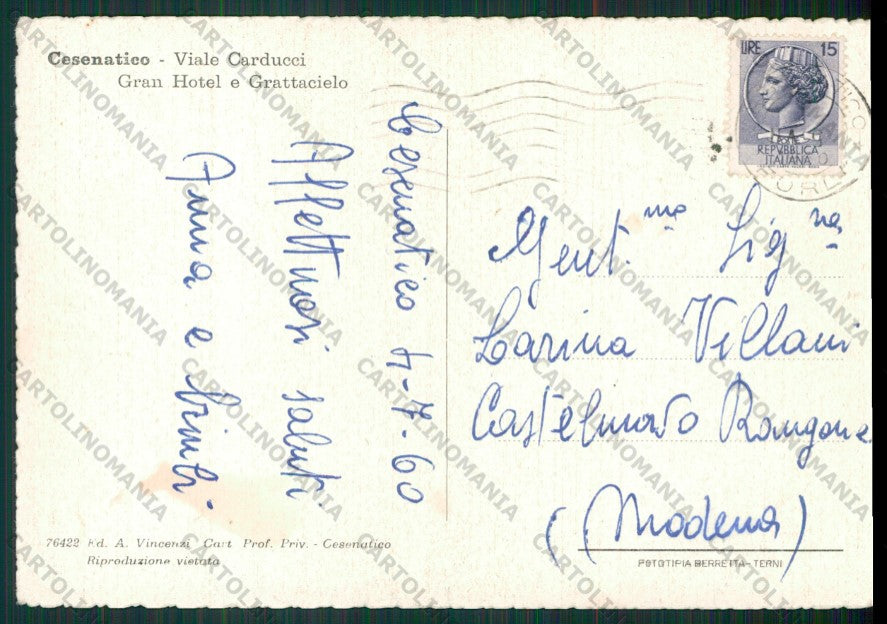 Cesenatico - Viale Carducci
Gran Hotel e Grattacielo
Cesenatico 4-7-60
Affettuosi saluti
Anna e bimbi
LIRE 15
REPVBBLICA
ITALIANA
Gent.ma Sig.na
Larina Villani
Castelnuovo Rangone
(Modena)
76422 Ed. A. Vincenzi Cart Prof. Priv. - Cesenatico
Riproduzione vietata
FOTOTIPIA BERRETTA - TERNI
CARTOLINOMANIA